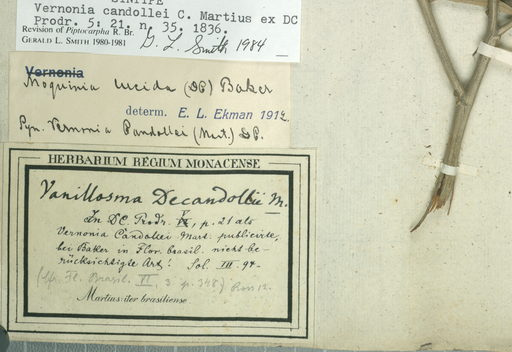 Vernonia candollei C. Martius ex DC
Prodr. 5: 21. n. 35. 1836.
Revision of Piptocarpha R. Br.
GERALD L. SMITH 1980-1981 G. L. Smith 1984
Vernonia
Moquinia lucida (DP) Baker
determ. E. L. Ekman 1914.
Syn. Vernonia Candollei (Mart.) DP.
HERBARIUM REGIUM MONACENSE
Vanillosma Decandollii M.
In DC Prodr. V, p. 21 als
Vernonia Candollei Mart. publicirte,
bei Baker in Flor. brasil. nicht be-
rücksichtigte Art! Sol. III. 94-
(cfr. Fl. Brasil. VI, 3 p. 348)
Martius: iter brasiliense